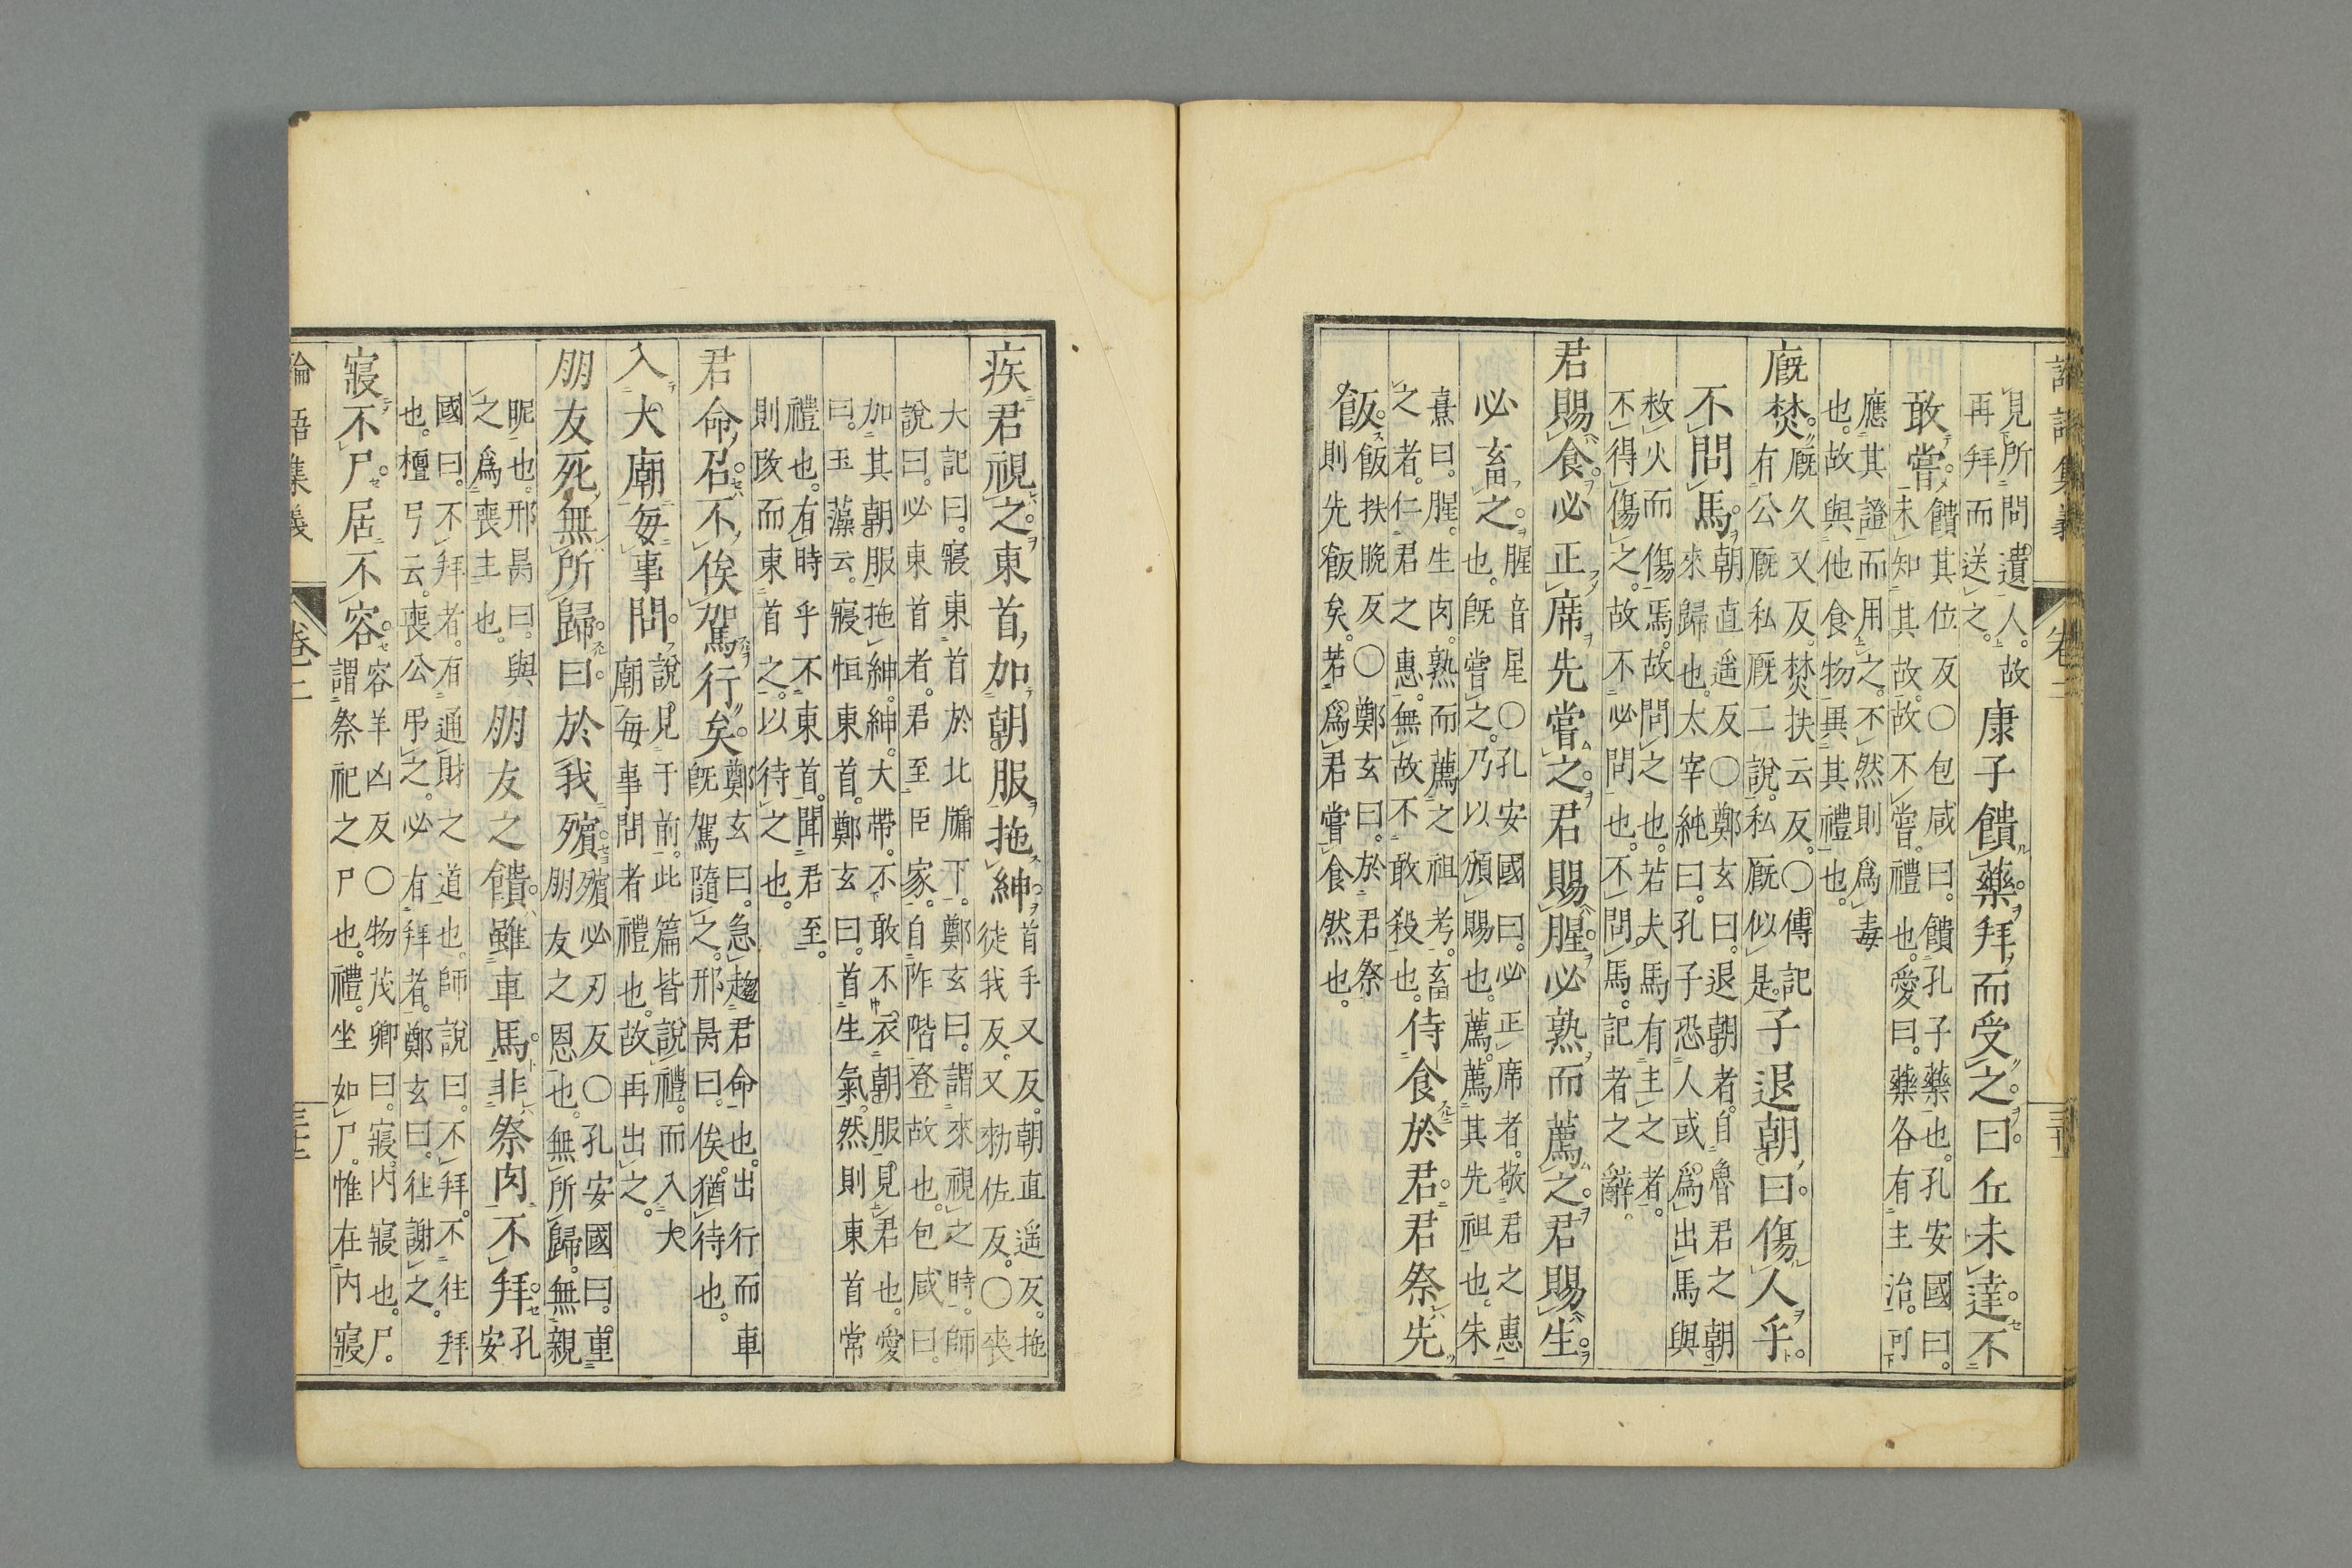 論語集義 卷二 三十
見所問遺人。故
再拜而送之。
康子饋藥。拜而受之。曰丘未達。不
敢嘗。
饋其位反〇包咸曰。饋孔子藥也。孔安國曰。
未知其故。故不嘗。禮也。愛曰。藥各有主治。可
應其證而用之。不然則爲毒
也。故與他食物異其禮也。
廐焚。
廐久又反。焚扶云反。〇傳記
有公廐私廐二說。私廐似是。
子退朝。曰。傷人乎。
不問馬。
朝直遥反〇鄭玄曰。退朝者。自魯君之朝
來歸也。太宰純曰。孔子恐人或爲出馬與
救火而傷焉。故問之也。若夫馬有主之者。
不得傷之。故不必問也。不問馬。記者之辭。
君賜食。必正席先嘗之。君賜腥。必熟而薦之。君賜生。
必畜之。
腥音星〇孔安國曰。必正席者。敬君之惠
也。旣嘗之。乃以頒賜也。薦。薦其先祖也。朱
熹曰。腥。生肉。熟而薦之祖考。畜
之者。仁君之惠。無故不敢殺也。
侍食於君。君祭先
飯。
飯扶晩反〇鄭玄曰。於君祭
則先飯矣。若爲君嘗食然也。
疾君視之。東首。加朝服拖紳。
首手又反。朝直遥反。拖
徒我反。又勑佐反。〇喪
大記曰。寢東首於北牖下。鄭玄曰。謂來視之時。師
說曰。必東首者。君至臣家。自阼階登故也。包咸曰。
加其朝服拖紳。紳。大帶。不敢不衣朝服見君也。愛
曰。玉藻云。寢恒東首。鄭玄曰。首生氣。然則東首常
禮也。有時乎不東首。聞君至。
則改而東首之。以待之也。
君命召。不俟駕行矣。
鄭玄曰。急趨君命也。出行而車
旣駕隨之。邢昺曰。俟。猶待也。
入大廟每事問。
說見于前。此篇皆說禮。而入大
廟每事問者禮也。故再出之。
朋友死。無所歸。曰。於我殯。
殯必刃反〇孔安國曰。重
朋友之恩也。無所歸。無親
昵也。邢昺曰。與
之爲喪主也。
朋友之饋。雖車馬。非祭肉不拜。
孔
安
國曰。不拜者。有通財之道也。師說曰。不拜。不往拜
也。檀弓云。喪公弔之。必有拜者。鄭玄曰。往謝之。
寢不尸。居不容。
容羊凶反〇物茂卿曰。寢。内寢也。尸。
謂祭祀之尸也。禮。坐如尸。惟在内寢
論語集義 卷二